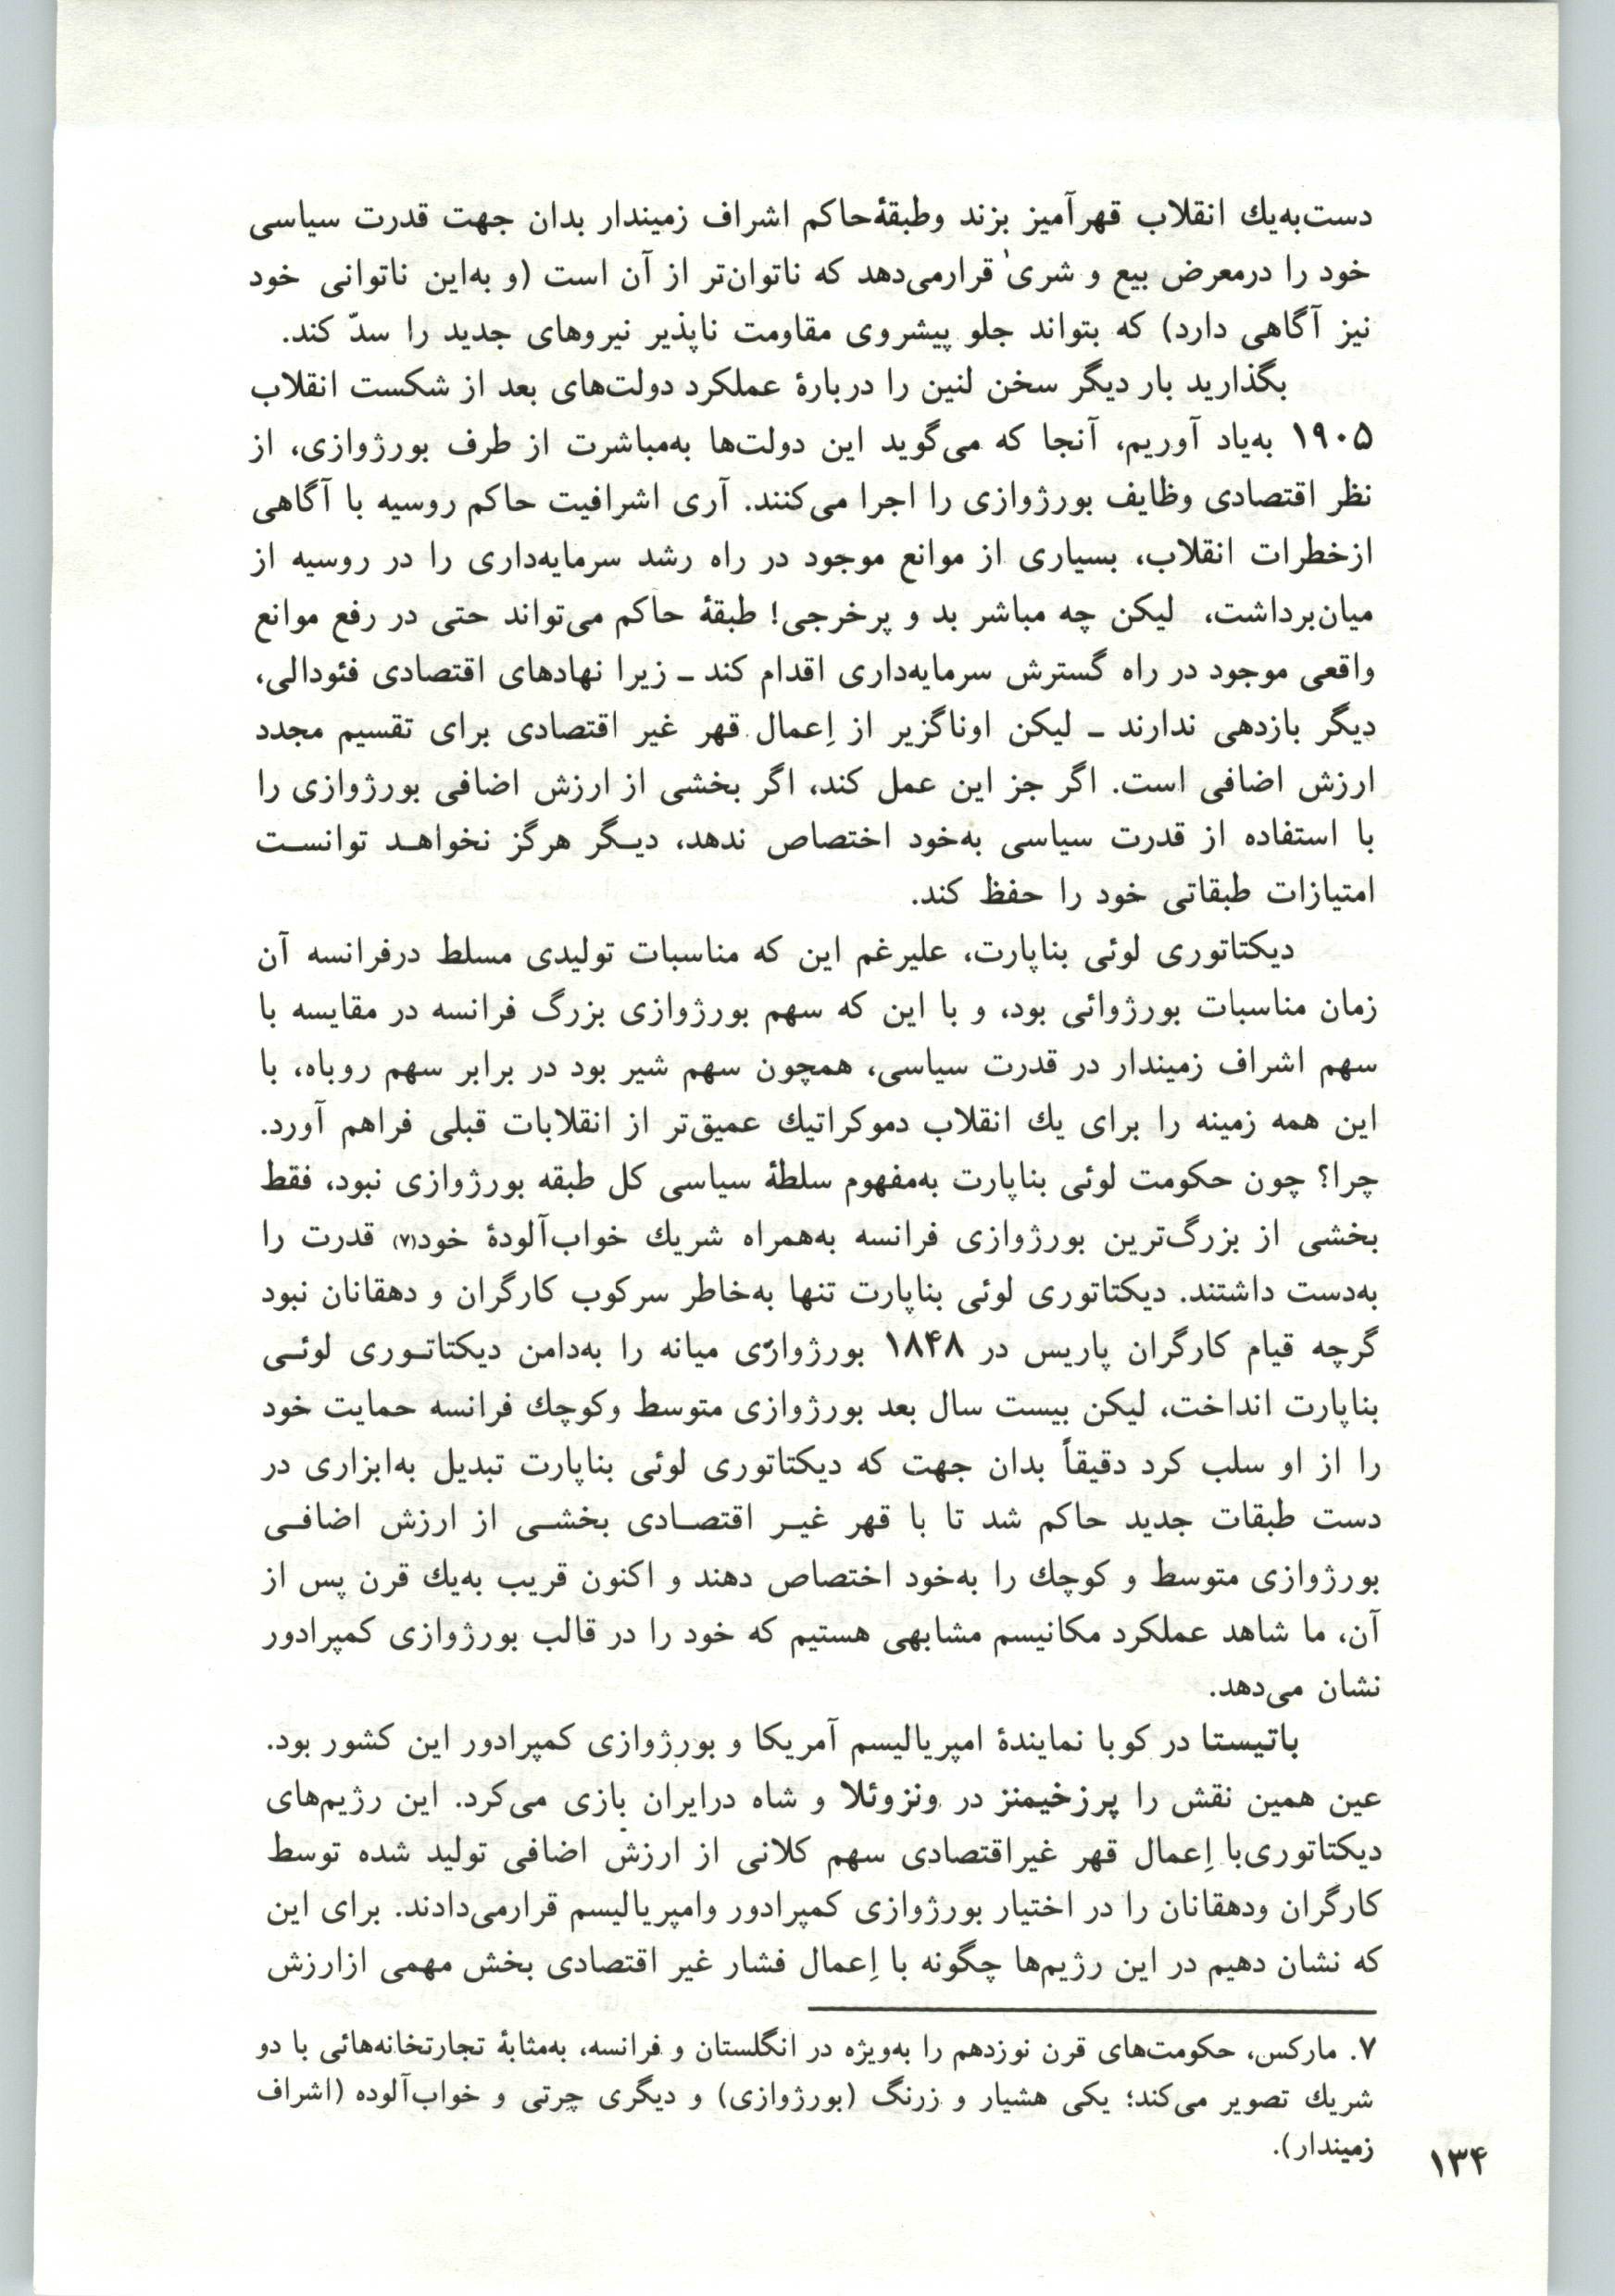 دست‌به‌یك انقلاب قهرآمیز بزند وطبقهٔ‌حاکم اشراف زمیندار بدان جهت قدرت سیاسی
خود را درمعرض بیع و شریٰ قرارمی‌دهد که ناتوان‌تر از آن است (و به‌این ناتوانی خود
نیز آگاهی دارد) که بتواند جلو پیشروی مقاومت ناپذیر نیروهای جدید را سدّ کند.
بگذارید بار دیگر سخن لنین را دربارهٔ عملکرد دولت‌های بعد از شکست انقلاب
۱۹۰۵ به‌یاد آوریم، آنجا که می‌گوید این دولت‌ها به‌مباشرت از طرف بورژوازی، از
نظر اقتصادی وظایف بورژوازی را اجرا می‌کنند. آری اشرافیت حاکم روسیه با آگاهی
ازخطرات انقلاب، بسیاری از موانع موجود در راه رشد سرمایه‌داری را در روسیه از
میان‌برداشت، لیکن چه مباشر بد و پرخرجی! طبقهٔ حاکم می‌تواند حتی در رفع موانع
واقعی موجود در راه گسترش سرمایه‌داری اقدام کند ـ زیرا نهادهای اقتصادی فئودالی،
دیگر بازدهی ندارند ـ لیکن اوناگزیر از اِعمال قهر غیر اقتصادی برای تقسیم مجدد
ارزش اضافی است. اگر جز این عمل کند، اگر بخشی از ارزش اضافی بورژوازی را
با استفاده از قدرت سیاسی به‌خود اختصاص ندهد، دیـگر هرگز نخواهـد توانسـت
امتیازات طبقاتی خود را حفظ کند.
دیکتاتوری لوئی بناپارت، علیرغم این که مناسبات تولیدی مسلط درفرانسه آن
زمان مناسبات بورژوائی بود، و با این که سهم بورژوازی بزرگ فرانسه در مقایسه با
سهم اشراف زمیندار در قدرت سیاسی، همچون سهم شیر بود در برابر سهم روباه، با
این همه زمینه را برای یك انقلاب دموکراتیك عمیق‌تر از انقلابات قبلی فراهم آورد.
چرا؟ چون حکومت لوئی بناپارت به‌مفهوم سلطهٔ سیاسی کل طبقه بورژوازی نبود، فقط
بخشی از بزرگ‌ترین بورژوازی فرانسه به‌همراه شریك خواب‌آلودهٔ خود(۷) قدرت را
به‌دست داشتند. دیکتاتوری لوئی بناپارت تنها به‌خاطر سرکوب کارگران و دهقانان نبود
گرچه قیام کارگران پاریس در ۱۸۴۸ بورژوازی میانه را به‌دامن دیکتاتـوری لوئـی
بناپارت انداخت، لیکن بیست سال بعد بورژوازی متوسط وکوچك فرانسه حمایت خود
را از او سلب کرد دقیقاً بدان جهت که دیکتاتوری لوئی بناپارت تبدیل به‌ابزاری در
دست طبقات جدید حاکم شد تا با قهر غیـر اقتصـادی بخشـی از ارزش اضافـی
بورژوازی متوسط و کوچك را به‌خود اختصاص دهند و اکنون قریب به‌یك قرن پس از
آن، ما شاهد عملکرد مکانیسم مشابهی هستیم که خود را در قالب بورژوازی کمپرادور
نشان می‌دهد.
باتیستا در کوبا نمایندهٔ امپریالیسم آمریکا و بورژوازی کمپرادور این کشور بود.
عین همین نقش را پرزخیمنز در ونزوئلا و شاه درایران بازی می‌کرد. این رژیم‌های
دیکتاتوری‌با اِعمال قهر غیراقتصادی سهم کلانی از ارزش اضافی تولید شده توسط
کارگران ودهقانان را در اختیار بورژوازی کمپرادور وامپریالیسم قرارمی‌دادند. برای این
که نشان دهیم در این رژیم‌ها چگونه با اِعمال فشار غیر اقتصادی بخش مهمی ازارزش
۷. مارکس، حکومت‌های قرن نوزدهم را به‌ویژه در انگلستان و فرانسه، به‌مثابهٔ تجارتخانه‌هائی با دو
شریك تصویر می‌کند؛ یکی هشیار و زرنگ (بورژوازی) و دیگری چرتی و خواب‌آلوده (اشراف
زمیندار).
۱۳۴